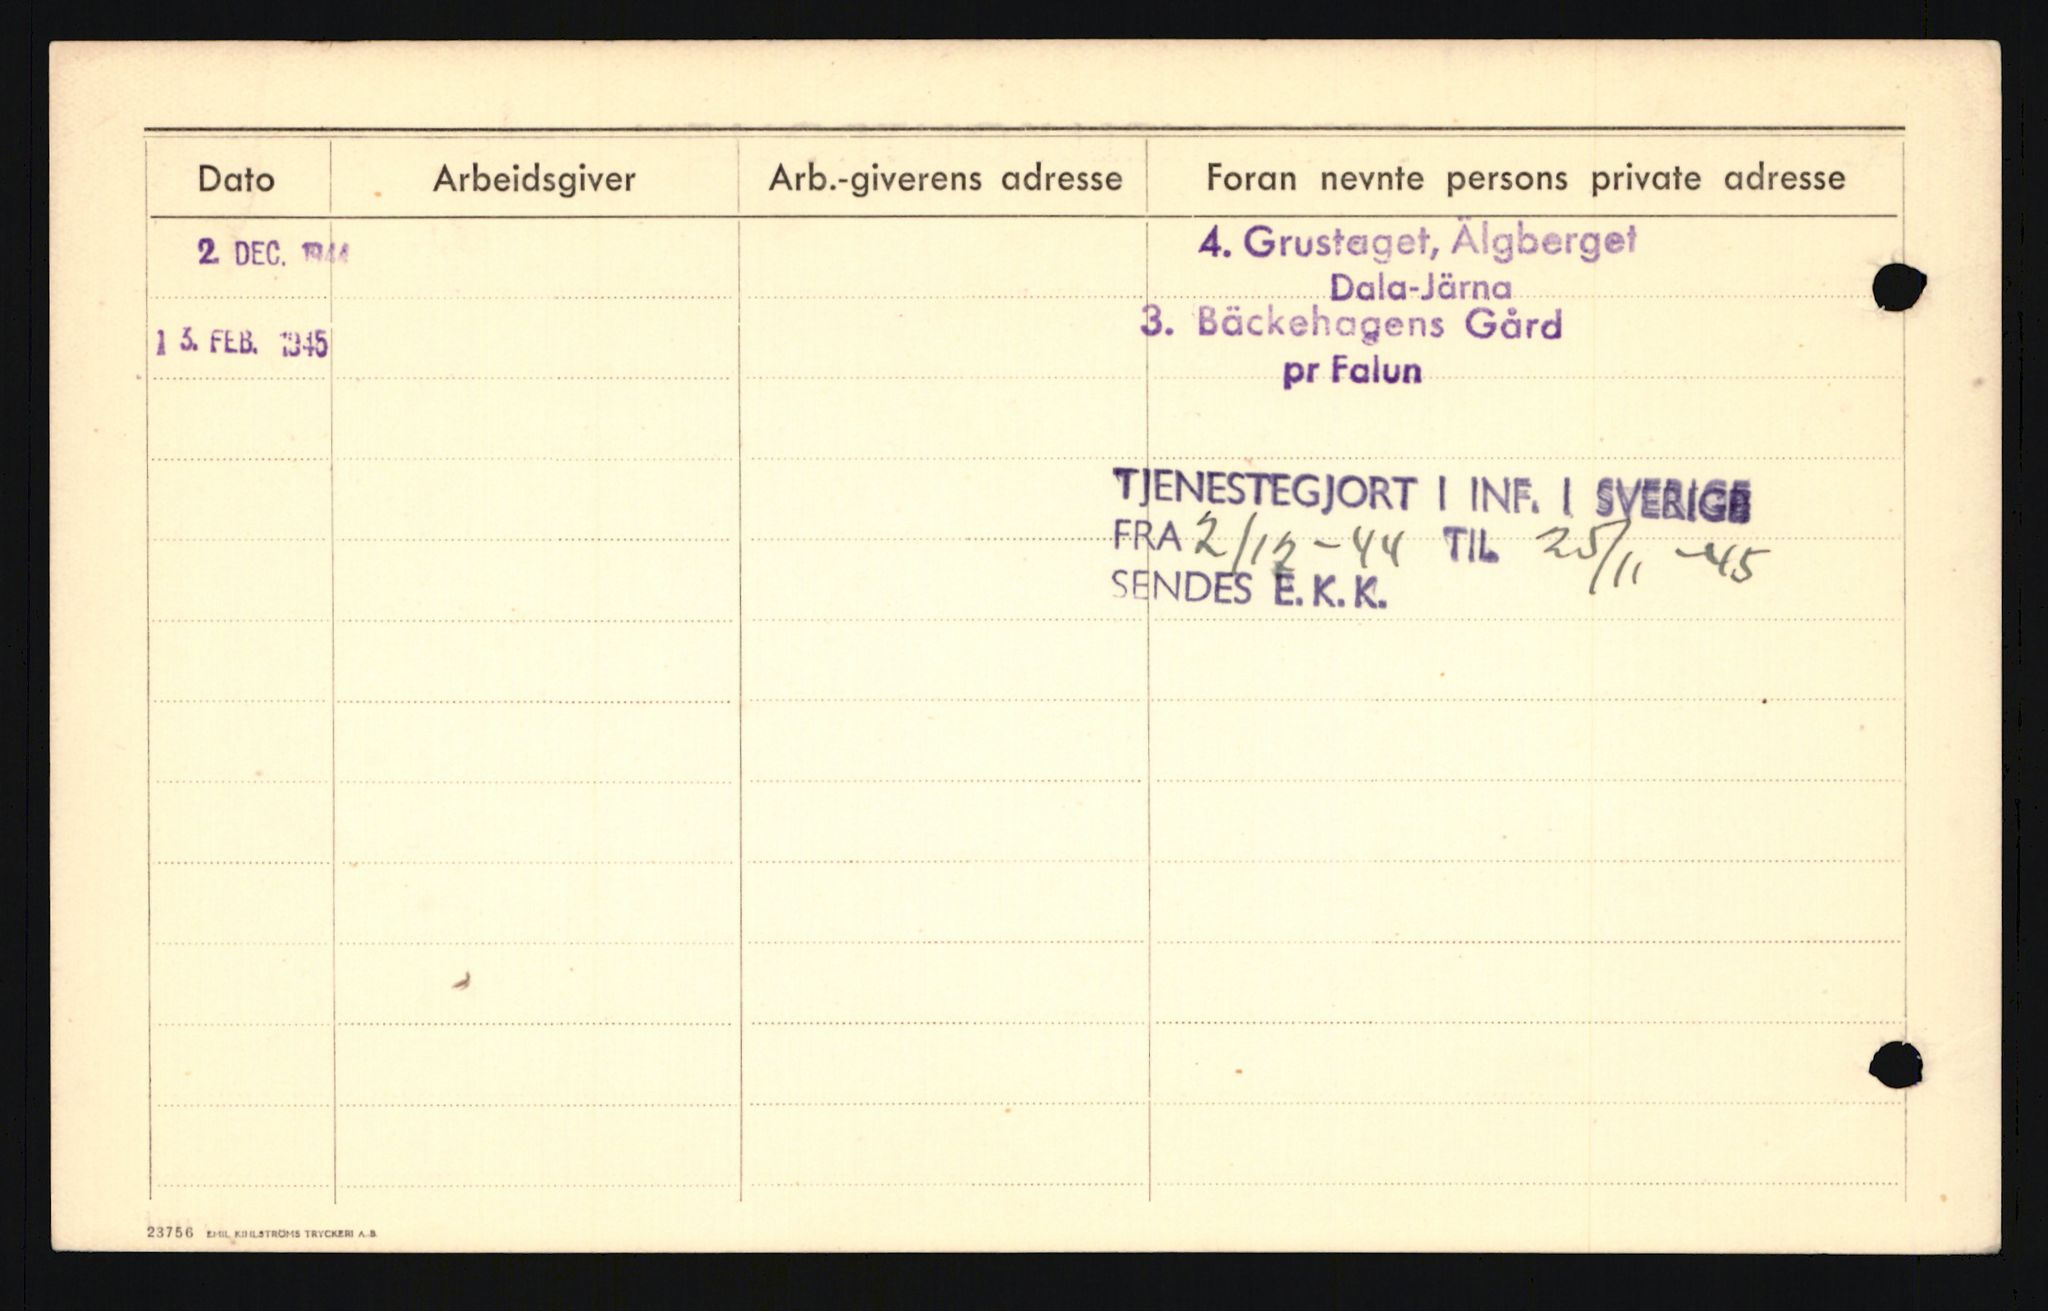 Dato Arbeidsgiver Arb.-giverens adresse Foran nevnte persons private adresse
2 DEC. 1944 4. Grustaget, Älgberget
Dala-Järna
13. FEB. 1945 3. Bäckehagens Gård
pr Falun
TJENESTEGJORT I INF. I SVERIGE
FRA 2/12-44 TIL 25/11-45
SENDES E.K.K.
23756 EMIL KIHLSTRÖMS TRYCKERI A.B.